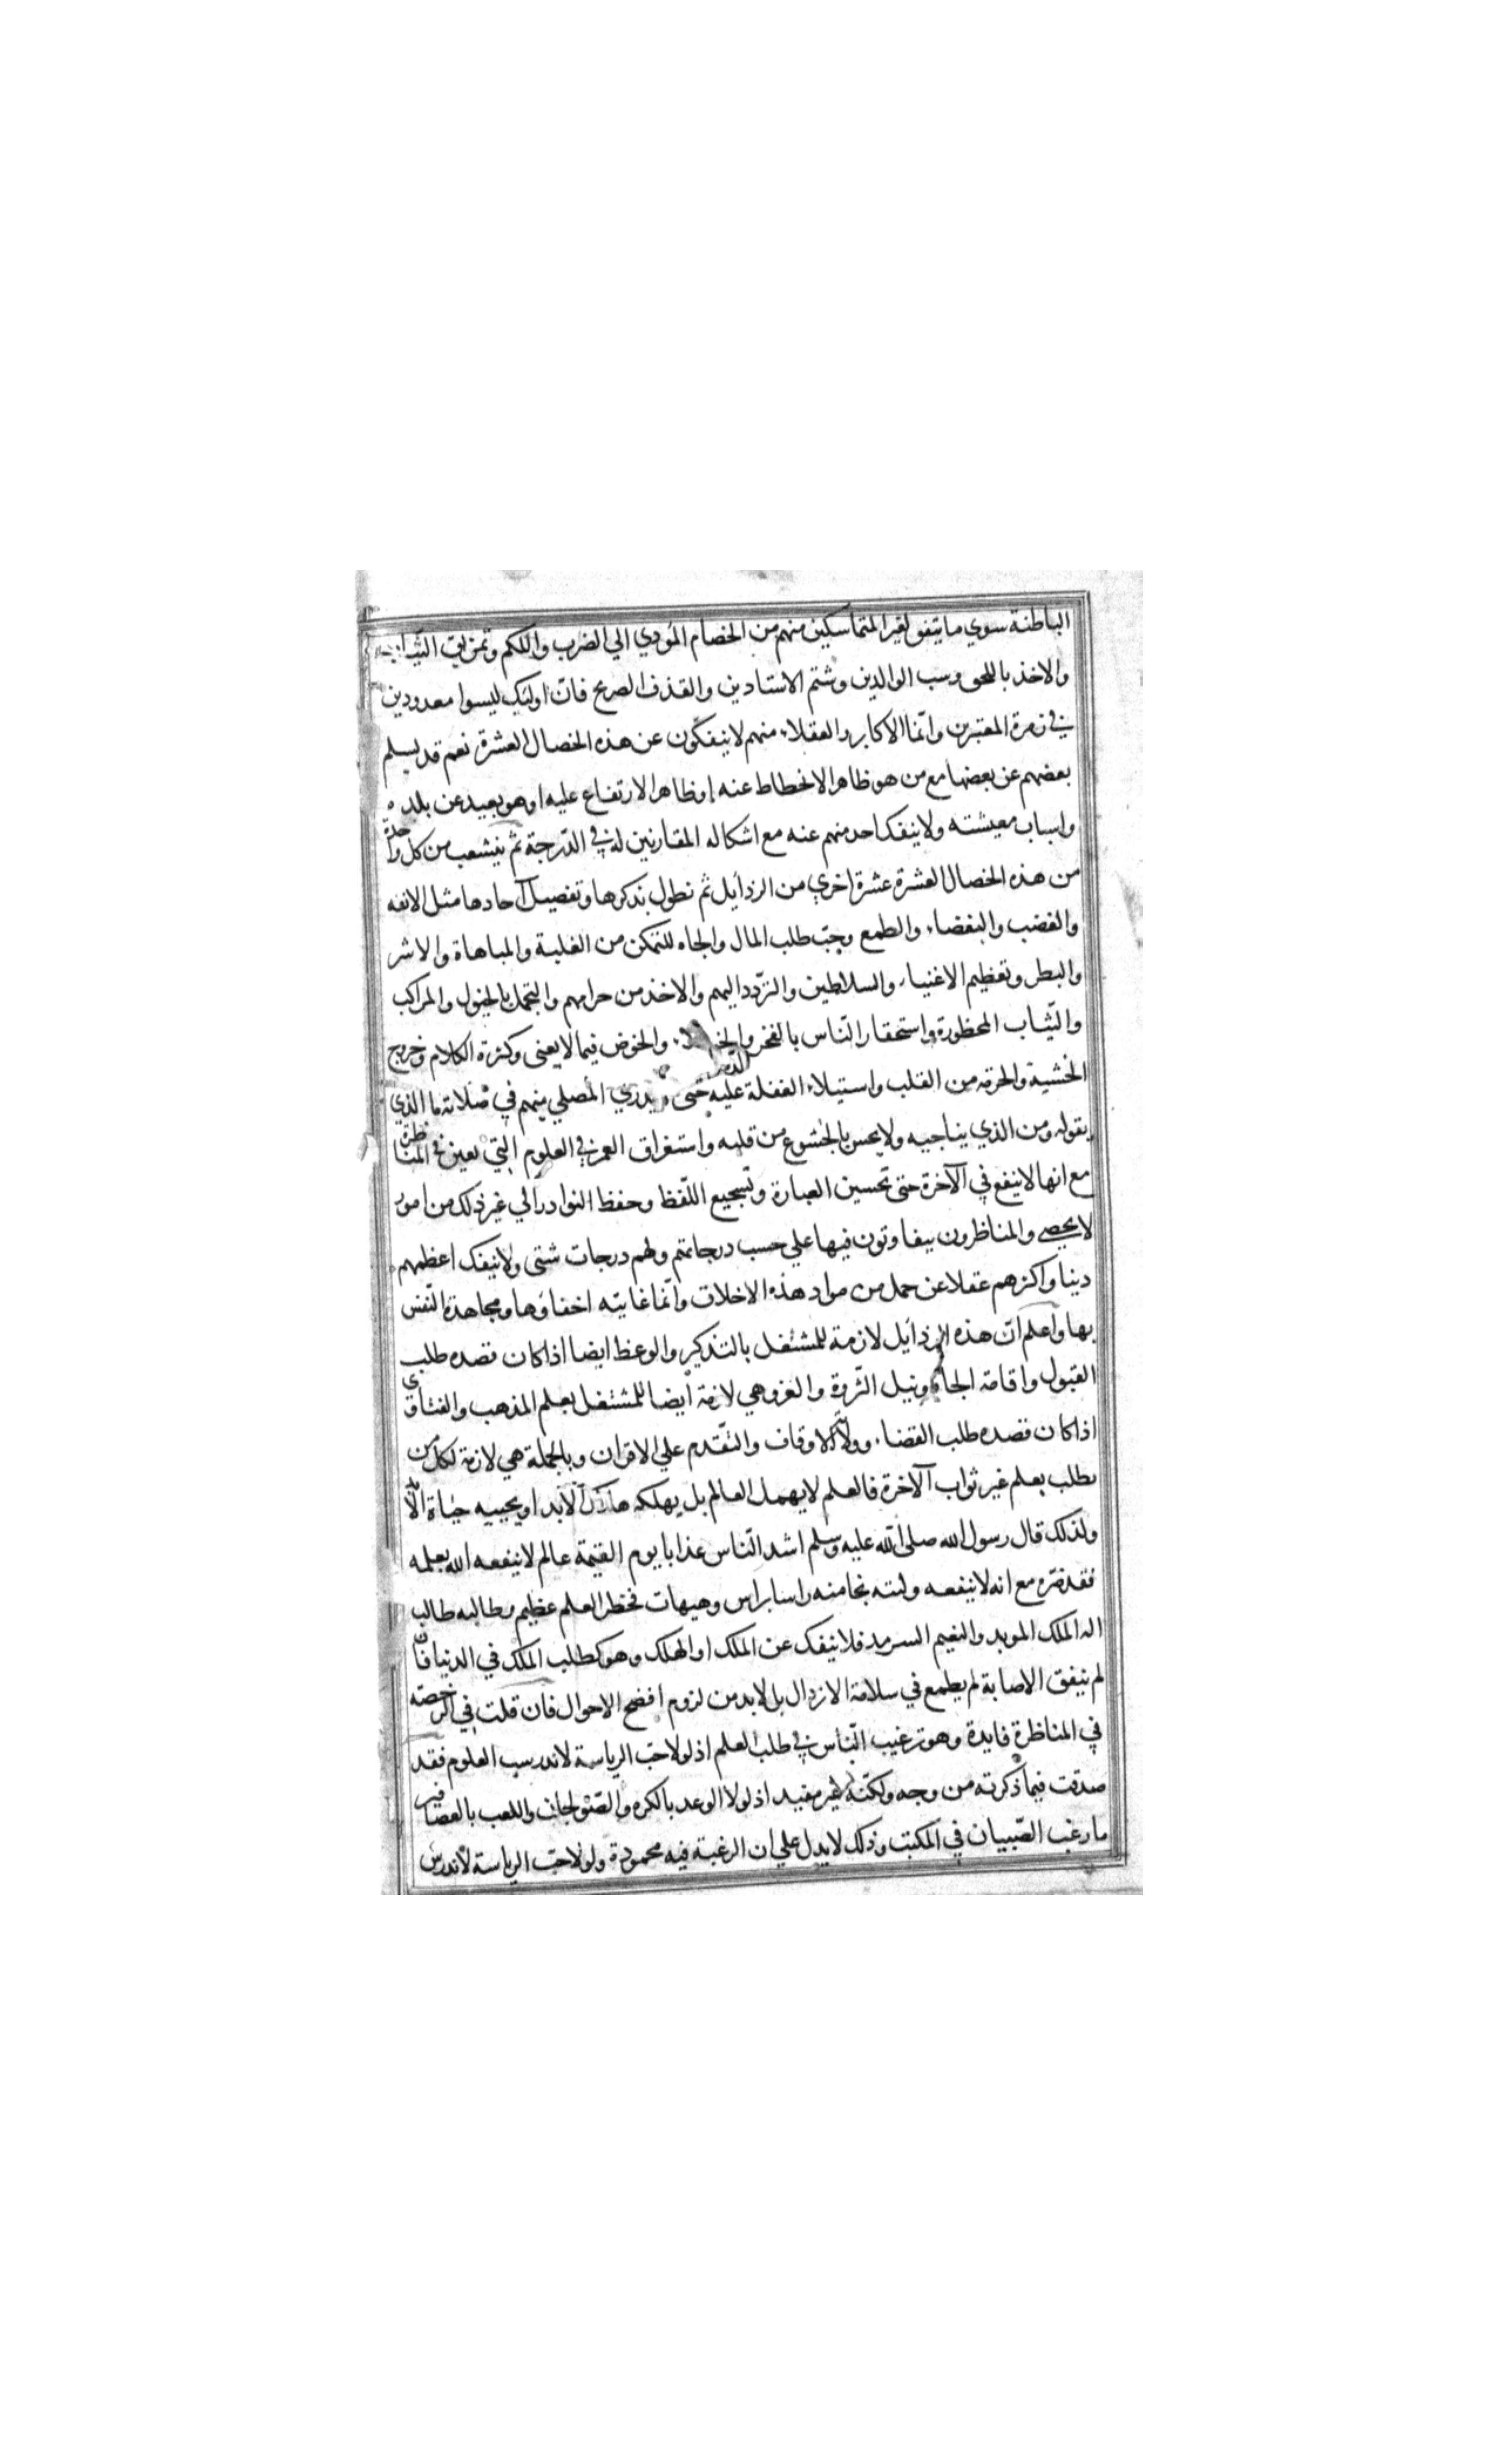 الباطنة سوي ما يتفق لغير المتماسكين منهم من الخصام المؤدي الي الضرب واللكم وتمزيق الثياب
والاخذ باللحي وسب الوالدين وشتم الاستادين والقذف الصريح فانّ اوليك ليسوا معدودين
في زمرة المعتبرين وانّما الاكابر والعقلاء منهم لا ينفكون عن هذه الخصال العشرة نعم قد يسلم
بعضهم عن بعضها مع من هو ظاهر الانحطاط عنه او ظاهر الارتفاع عليه او هو بعيد عن بلده
واسباب معيشته ولا ينفك احد منهم عنه مع اشكاله المقارنين له في الدّرجة ثم يتشعب من كل واحدة
من هذه الخصال العشرة عشرة اخري من الرذايل ثم نطول بذكرها وتفصيل آحادها مثل الانفه
والغضب والبغضاء والطمع وحبّ طلب المال والجاه للتمكن من الغلبة والمباهاة والاشر
والبطر وتعظيم الاغنياء والسلاطين والتردّد اليهم والاخذ من حرامهم والتجمل بالخيول والمراكب
والثّياب المحظورة واستحقار النّاس بالفخر والخيلاء والخوض فيما لا يعني وكثرة الكلام وخروج
الخشية والحرقه من القلب واستيلاء الغفلة عليه حتى يدري المصلي منهم في صلاته ما الذي
يقوله ومن الذي يناجيه ولا يحس بالخشوع من قلبه واستغراق العمر في العلوم التي تعين في المناظرة
مع انها لا ينفع في الآخرة حتى تحسين العبارة وتسجيع اللّفظ وحفظ النوادر الي غير ذلك من امور
لا يحصي والمناظرون يتفاوتون فيها علي حسب درجاتهم ولهم درجات شتى ولا ينفك اعظمهم
دينا واكثرهم عقلا عن حمل من مواد هذه الاخلاق وانّما غايته اخفاؤها ومجاهدة النّفس
بها واعلم انّ هذه الرذايل لازمة للمشتغل بالتذكير والوعظ ايضا اذا كان قصده طلب
القبول واقامة الجاه ونيل الثّروة والعز وهي لازمة ايضا للمشتغل بعلم المذهب والفتاوي
اذا كان قصده طلب القضاء وولاية الاوقاف والتّقدم علي الاقران وبالجملة هي لازمة لكل من
يطلب بعلم غير ثواب الآخرة فالعلم لا يهمل العالم بل يهلكه هلاك الابد او يحييه حياة الابد
ولذلك قال رسول الله صلى الله عليه وسلم اشد النّاس عذابا يوم القيمة عالم لا ينفعه الله بعلمه
فقد ضرّه مع انه لا ينفعه وليته نجا منه راسا براس وهيهات فخطر العلم عظيم وطالبه طالب
اله الملك الموبد والنعيم السرمد فلا ينفك عن الملك او الهلك وهو كطلب الملك في الدنيا فان
لم يتفق الاصابة لم يطمع في سلامة الارذال بل لابد من لزوم افضح الاحوال فان قلت في الرخصه
في المناظرة فايدة وهو ترغيب النّاس في طلب العلم اذ لولا حبّ الرياسة لاندرست العلوم فقد
صدقت فيما ذكرته من وجه ولكنّه غير مفيد اذ لولا الوعد بالكره والصّولجان واللعب بالعصافير
ما رغب الصّبيان في المكتب وذلك لا يدل علي ان الرغبة فيه محمودة ولولا حبّ الرياسة لاندرس